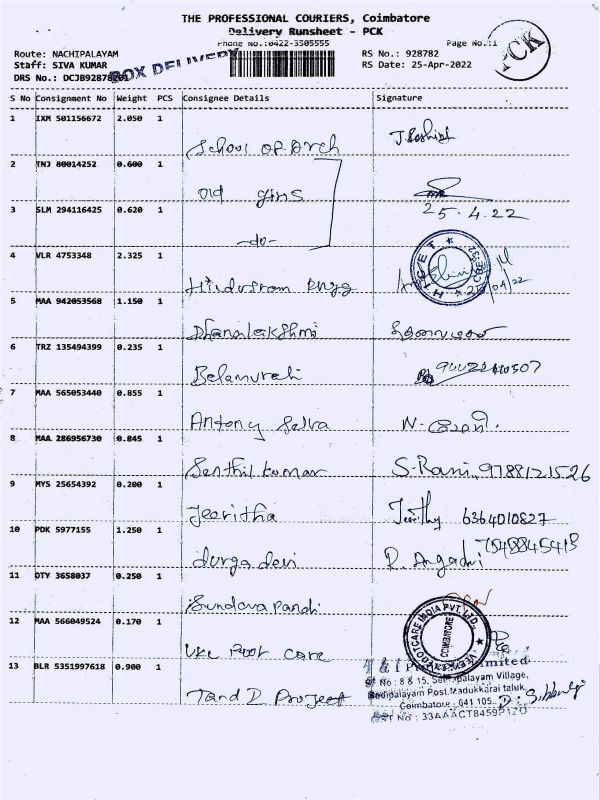 THE PROFESSIONAL COURIERS, Coimbatore
Delivery Runsheet - PCK
Phone No.:0422-3505555
Page No.:1
PCK
Route: NACHIPALAYAM
RS No.: 928782
Staff: SIVA KUMAR
RS Date: 25-Apr-2022
BOX DELIVERY
S No Consignment No Weight PCS Consignee Details Signature
1 IXM 501156672 2.050 1 School of Arch
2 TNJ 80014252 0.600 1 old gins
3 SLM 294116425 0.620 1 -do- 25.4.22
4 VLR 4753348 2.325 1 Hindustan Engg
5 MAA 942053568 1.150 1 Dhanalakshmi
6 TRZ 135494399 0.235 1 Balamurali
7 MAA 565053440 0.855 1 Antony Selva
8 MAA 286956730 0.845 1 Senthil kumar S. Rani, 9788121526
9 MYS 25654392 0.200 1 Jeeritha 6364010827
10 PDK 5977155 1.250 1 durga devi
11 OTY 3658037 0.250 1 Sundara Pandi
12 MAA 566049524 0.170 1 VKC Foot care
FOOTCARE INDIA PVT. LTD.
COIMBATORE
13 BLR 5351997618 0.900 1 T and I Project
Limited
No : 8 & 15,
palayam Village,
Post, Madukkarai taluk,
Coimbatore - 641 105.